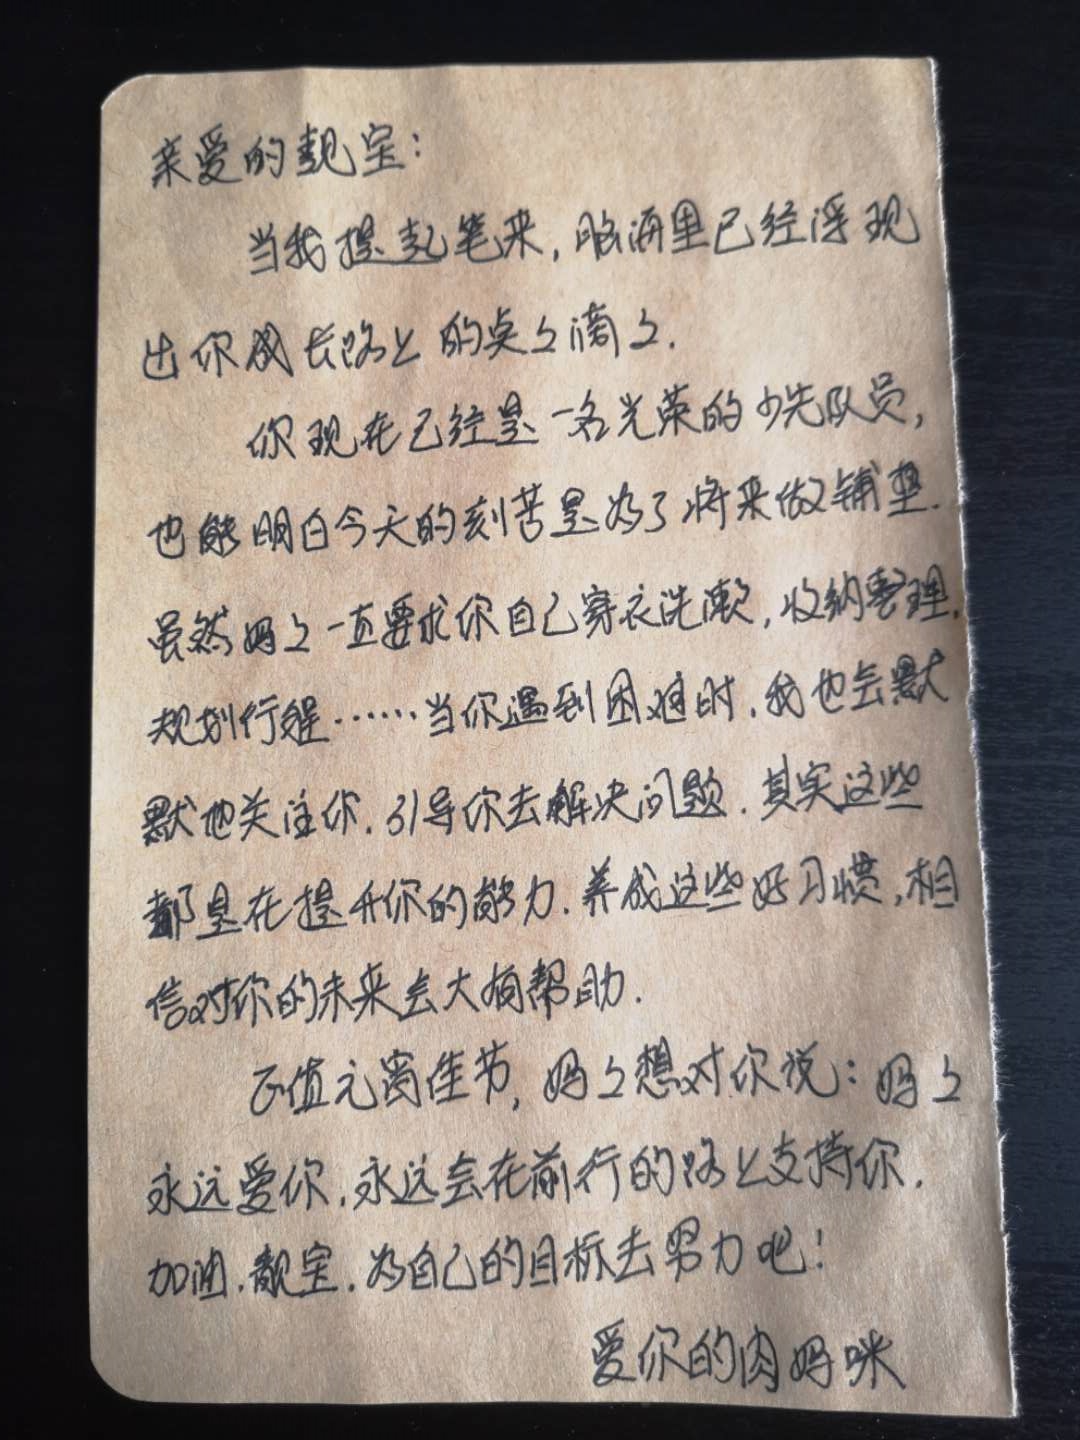 亲爱的靓宝：
当我提起笔来，脑海里已经浮现
出你成长路上的点々滴々.
你现在已经是一名光荣的少先队员，
也能明白今天的刻苦是为了将来做铺垫.
虽然妈々一直要求你自己穿衣洗漱，收纳整理.
规划行程……当你遇到困难时.我也会默
默地关注你.引导你去解决问题.其实这些
都是在提升你的能力.养成这些好习惯，相
信对你的未来会大有帮助.
正值元宵佳节，妈々想对你说：妈々
永远爱你.永远会在前行的路上支持你.
加油.靓宝.为自己的目标去努力吧！
爱你的肉妈咪